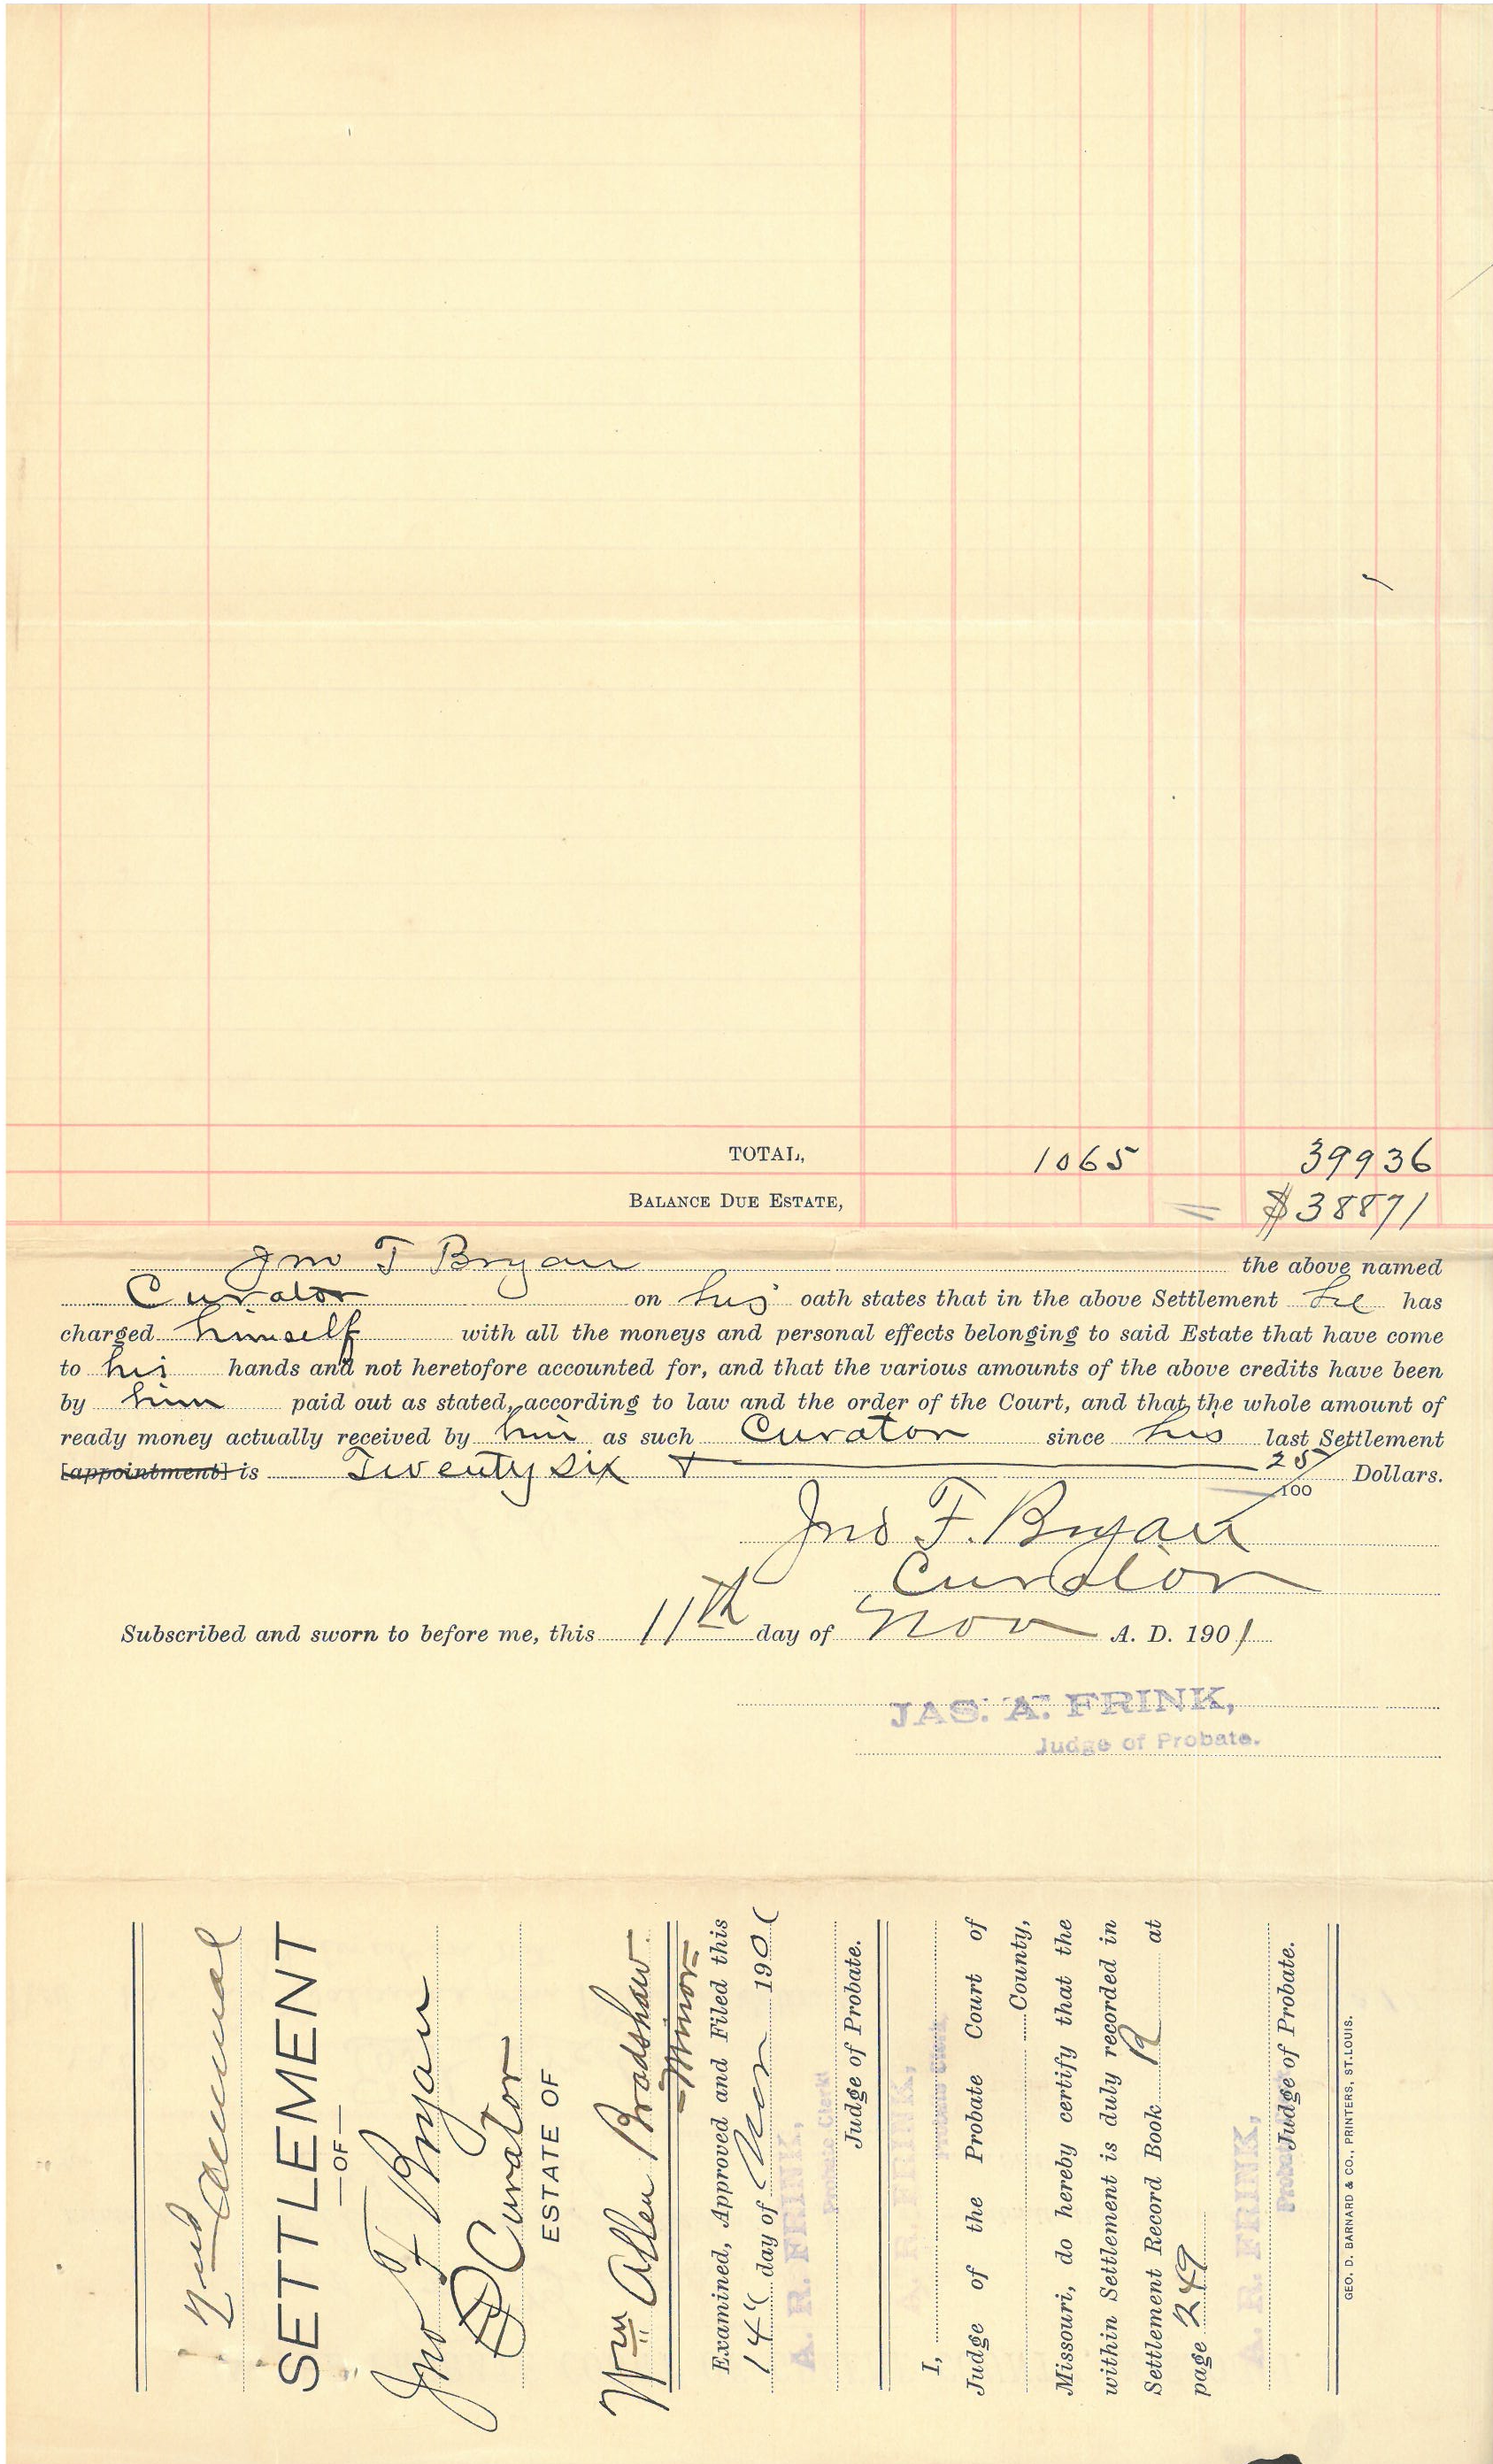 TOTAL, 1065 39936
BALANCE DUE ESTATE, = $38871
Jno F Bryan the above named
Curator on his oath states that in the above Settlement he has
charged himself with all the moneys and personal effects belonging to said Estate that have come
to his hands and not heretofore accounted for, and that the various amounts of the above credits have been
by him paid out as stated, according to law and the order of the Court, and that the whole amount of
ready money actually received by him as such Curator since his last Settlement
[appointment] is Twenty six + 25/100 Dollars.
Jno F. Bryan
Curator
Subscribed and sworn to before me, this 11th day of Nov A. D. 1901
JAS. A. FRINK,
Judge of Probate.
Annual
SETTLEMENT
—OF—
Jno F Bryan
Curator
ESTATE OF
Wm Allen Bradshaw
Minor
Examined, Approved and Filed this
14 day of Nov 1901
A. R. FRINK,
Probate Clerk
Judge of Probate.
A. R. FRINK,
I,
Probate Clerk
Judge of the Probate Court of
County,
Missouri, do hereby certify that the
within Settlement is duly recorded in
Settlement Record Book R at
page 249
A. R. FRINK,
Judge of Probate.
GEO. D. BARNARD & CO., PRINTERS, ST. LOUIS.